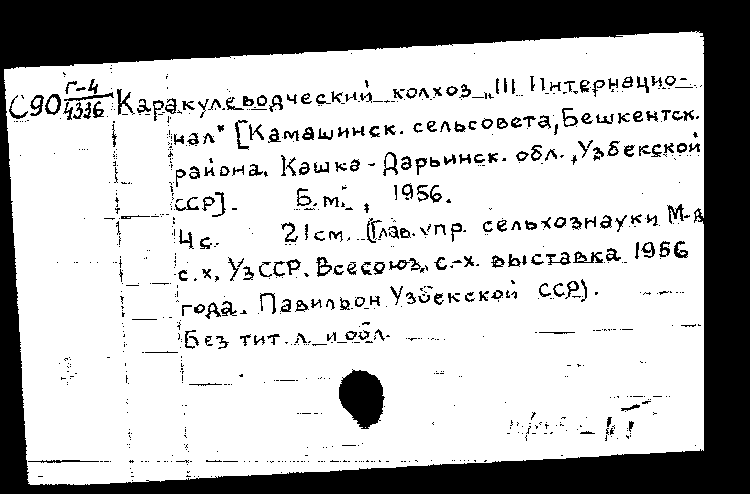 С90 Г-4/4336 Каракулеводческий колхоз „III Интернацио-
нал" [Камашинск. сельсовета, Бешкентск.
района. Кашка-Дарьинск. обл., Узбекской
ССР]. Б.м., 1956.
4 с. 21 см. (Глав. упр. сельхознауки М-ва
с.х. УзССР. Всесоюз. с.-х. выставка 1956
года. Павильон Узбекской ССР).
Без тит. л. и обл.